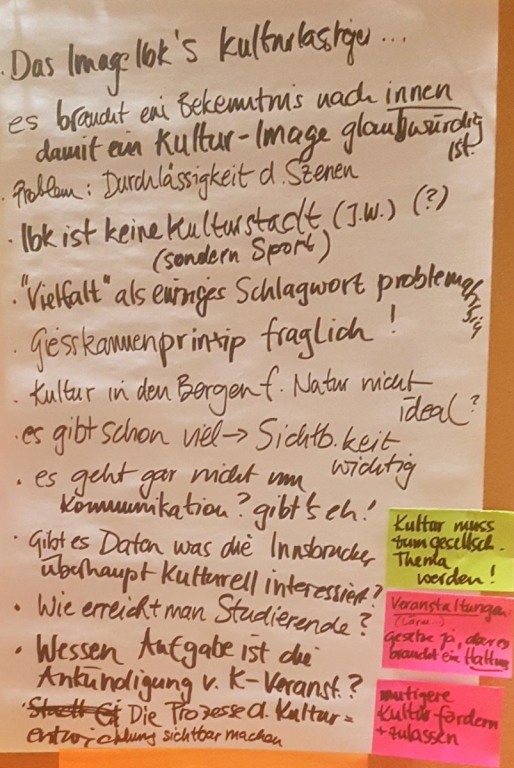 · Das Image Ibk's kulturlastiger...
es braucht ein Bekenntnis nach innen
damit ein Kultur-Image glaubwürdig
ist.
· Problem: Durchlässigkeit d. Szenen
· Ibk ist keine Kulturstadt (J.W.) (?)
(sondern Sport)
· "Vielfalt" als einziges Schlagwort problematisch
· Giesskannenprinzip fraglich!
· Kultur in den Bergen f. Natur nicht
ideal?
· es gibt schon viel → Sichtb.keit
wichtig
· es geht gar nicht um
Kommunikation? gibt's eh!
· Gibt es Daten was die Innsbrucker
überhaupt kulturell interessiert?
· Wie erreicht man Studierende?
· Wessen Aufgabe ist die
Ankündigung v. K-Veranst.?
· Die Prozesse d. Kultur=
entwicklung sichtbar machen
Kultur muss
zum gesellsch.
Thema
werden!
Veranstaltungen
(Lärm...)
Gesetze ja, aber es
braucht eine Haltung
mutigere
Kultur fördern
+ zulassen